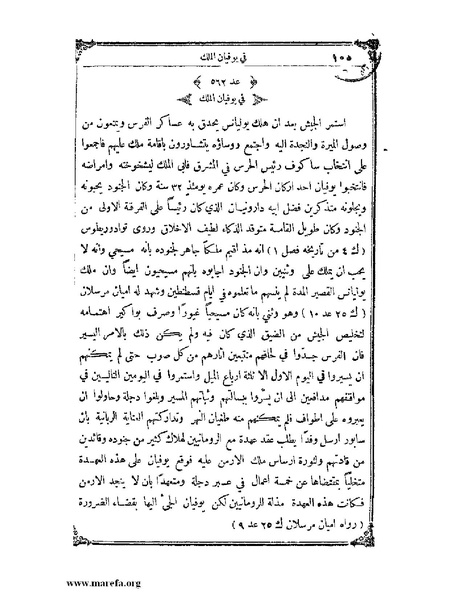 في يوفيان الملك ١٠٥
﴿ عد ٥٦٢ ﴾
﴿ في يوفيان الملك ﴾
استمر الجيش بعد ان هلك يوليانس يحدق به عساكر الفرس ويمنعون من
وصول الميرة والنجدة اليه واجتمع روساؤه يتشاورون باقامة ملك عليهم فاجمعوا
على انتخاب ساكوف رئيس الحرس في المشرق فابى الملك لشيخوخته وامراضه
فانتخبوا يوفيان احد اركان الحرس وكان عمره يومئذٍ ٣٢ سنة وكان الجنود يحبونه
ويجلونه متذكرين فضل ابيه دارونيان الذي كان رئيساً على الفرقة الاولى من
الجنود وكان طويل القامة متوقد الذكاء لطيف الاخلاق وروى توادوريطوس
(ك ٤ من تاريخه فصل ١) انه مذ اقيم ملكاً جاهر لجنوده بانه مسيحي وانه لا
يحب ان يملك على وثنيين وان الجنود اجابوه بانهم مسيحيون ايضاً وان ملك
يوليانس القصير المدة لم ينسهم ما تعلموه في ايام قسطنطين وشهد له اميان مرسلان
(ك ٢٥ عد ١٠) وهو وثني بانه كان مسيحياً غيوراً وصرف بواكير اهتمامه
لتخليص الجيش من الضيق الذي كان فيه ولم يكن ذلك بالامر اليسير
فان الفرس جدّوا في لحاقهم متتبعين اثارهم من كل صوب حتى لم يمكنهم
ان يسيروا في اليوم الاول الا ثلثة ارباع الميل واستمروا في اليومين التاليين في
مواقفهم مدافعين الى ان يسّروا ببسالتهم وثباتهم المسير وبلغوا دجلة وحاولوا ان
يعبروه على اطواف فلم يمكنهم منه طغيان النهر وتداركتهم العناية الربانية بان
سابور ارسل وفداً يطلب عقد عهدة مع الرومانيين لهلاك كثير من جنوده وقائدين
من قادتهم ولثورة ارساس ملك الارمن عليه فوقع يوفيان على هذه العهدة
متخلياً بمقتضاها عن خمسة اعمال في عبر دجلة ومتعهداً بان لا ينجد الارمن
فكانت هذه العهدة مذلة للرومانيين لكن يوفيان الجئ اليها بقضاء الضرورة
(رواه اميان مرسلان ك ٢٥ عد ٩)
www.marefa.org